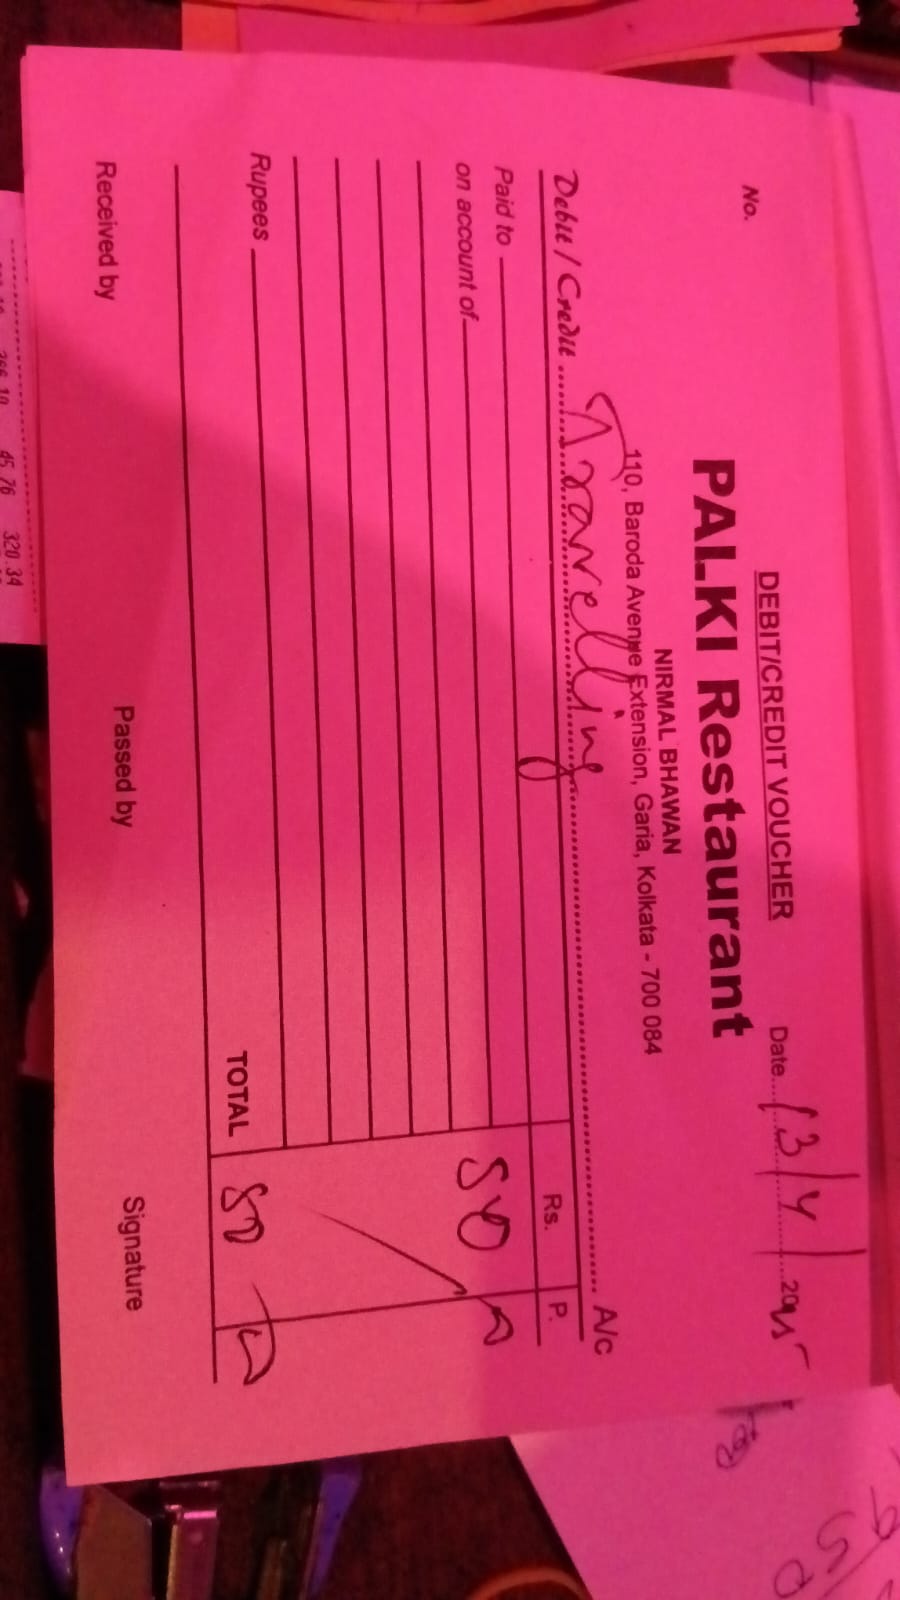 DEBIT/CREDIT VOUCHER
No.
Date 13/4/2025
PALKI Restaurant
NIRMAL BHAWAN
110, Baroda Avenue Extension, Garia, Kolkata - 700 084
Debit / Credit Travelling A/c
Rs. P.
Paid to
on account of
Rupees
TOTAL
Received by
Passed by
Signature
45.76 320.34